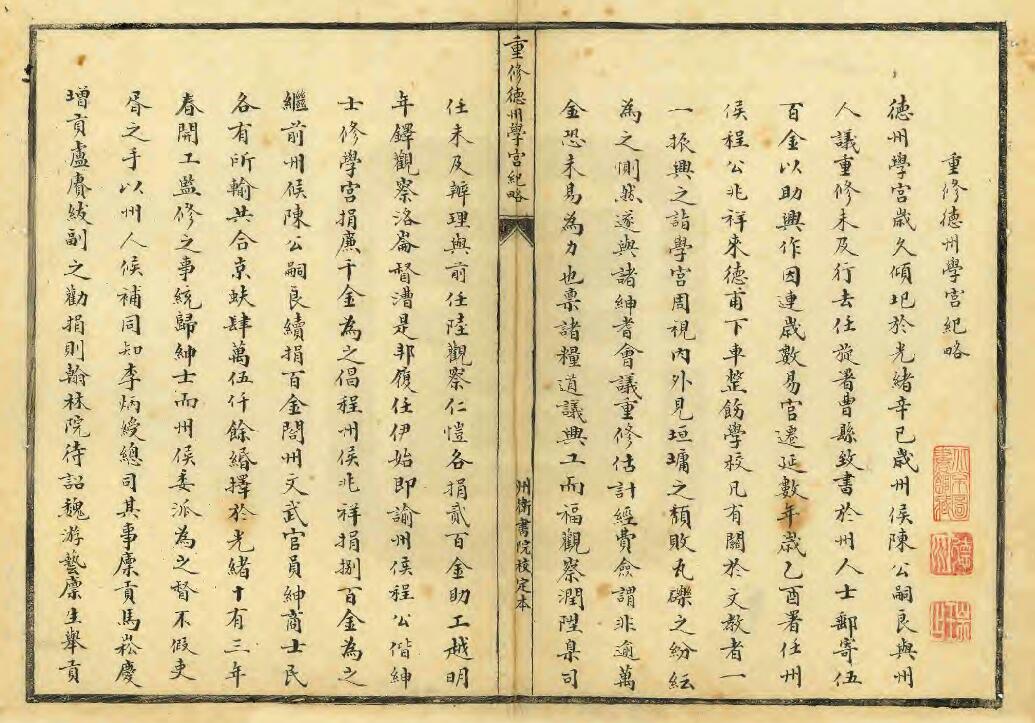 重修德州學宮紀略
德州學宮歲久傾圯於光緒辛巳歲州侯陳公嗣良與州
人議重修未及行去任旋署曹縣致書於州人士郵寄伍
百金以助興作因連歲數易官遷延數年歲乙酉署任州
侯程公兆祥來德甫下車整飭學校凡有關於文教者一
一振興之詣學宮周視內外見垣墉之頹敗瓦礫之紛紜
為之惻然遂與諸紳耆會議重修估計經費僉謂非逾萬
金恐未易為力也稟諸糧道議興工而福觀察潤陞臬司
重修德州學宮紀略
州衛書院校定本
任未及辦理與前任陸觀察仁愷各捐貳百金助工越明
年鐸觀察洛崙督漕是邦履任伊始即諭州侯程公偕紳
士修學宮捐廉千金為之倡程州侯兆祥捐捌百金為之
繼前州侯陳公嗣良續捐百金閤州文武官員紳商士民
各有所輸共合京蚨肆萬伍仟餘緡擇於光緒十有三年
春開工監修之事統歸紳士而州侯委派為之督不假吏
胥之手以州人候補同知李炳綬總司其事廩貢馬崧慶
增貢盧賡紱副之勸捐則翰林院待詔魏游藝廩生舉貢